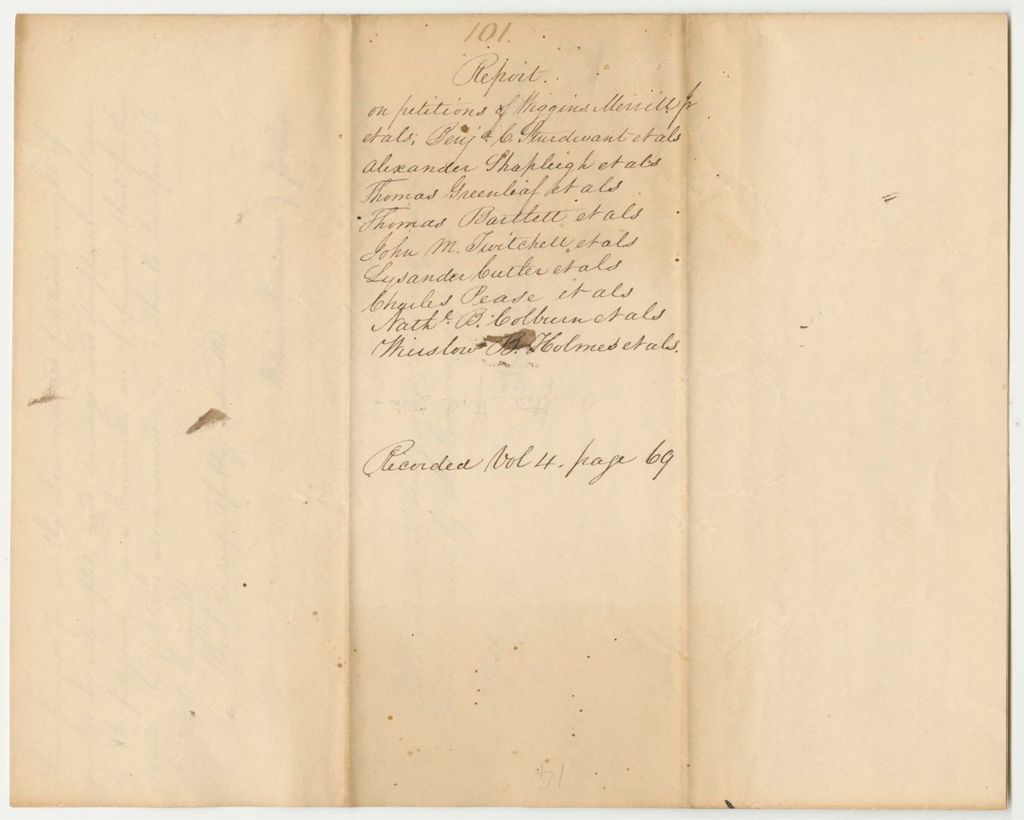 101.
Report.
on petitions of Wiggins Merrill Jr
et als; Benj. C. Sturdivant et als
Alexander Shapleigh et als
Thomas Greenleaf et als
Thomas Bartlett et als
John M. Twitchell et als
Lysander Cutler et als
Charles Pease et als
Nathl. B. Colburn et als
Winslow B. Holmes et als.
Recorded Vol 4. page 69
14